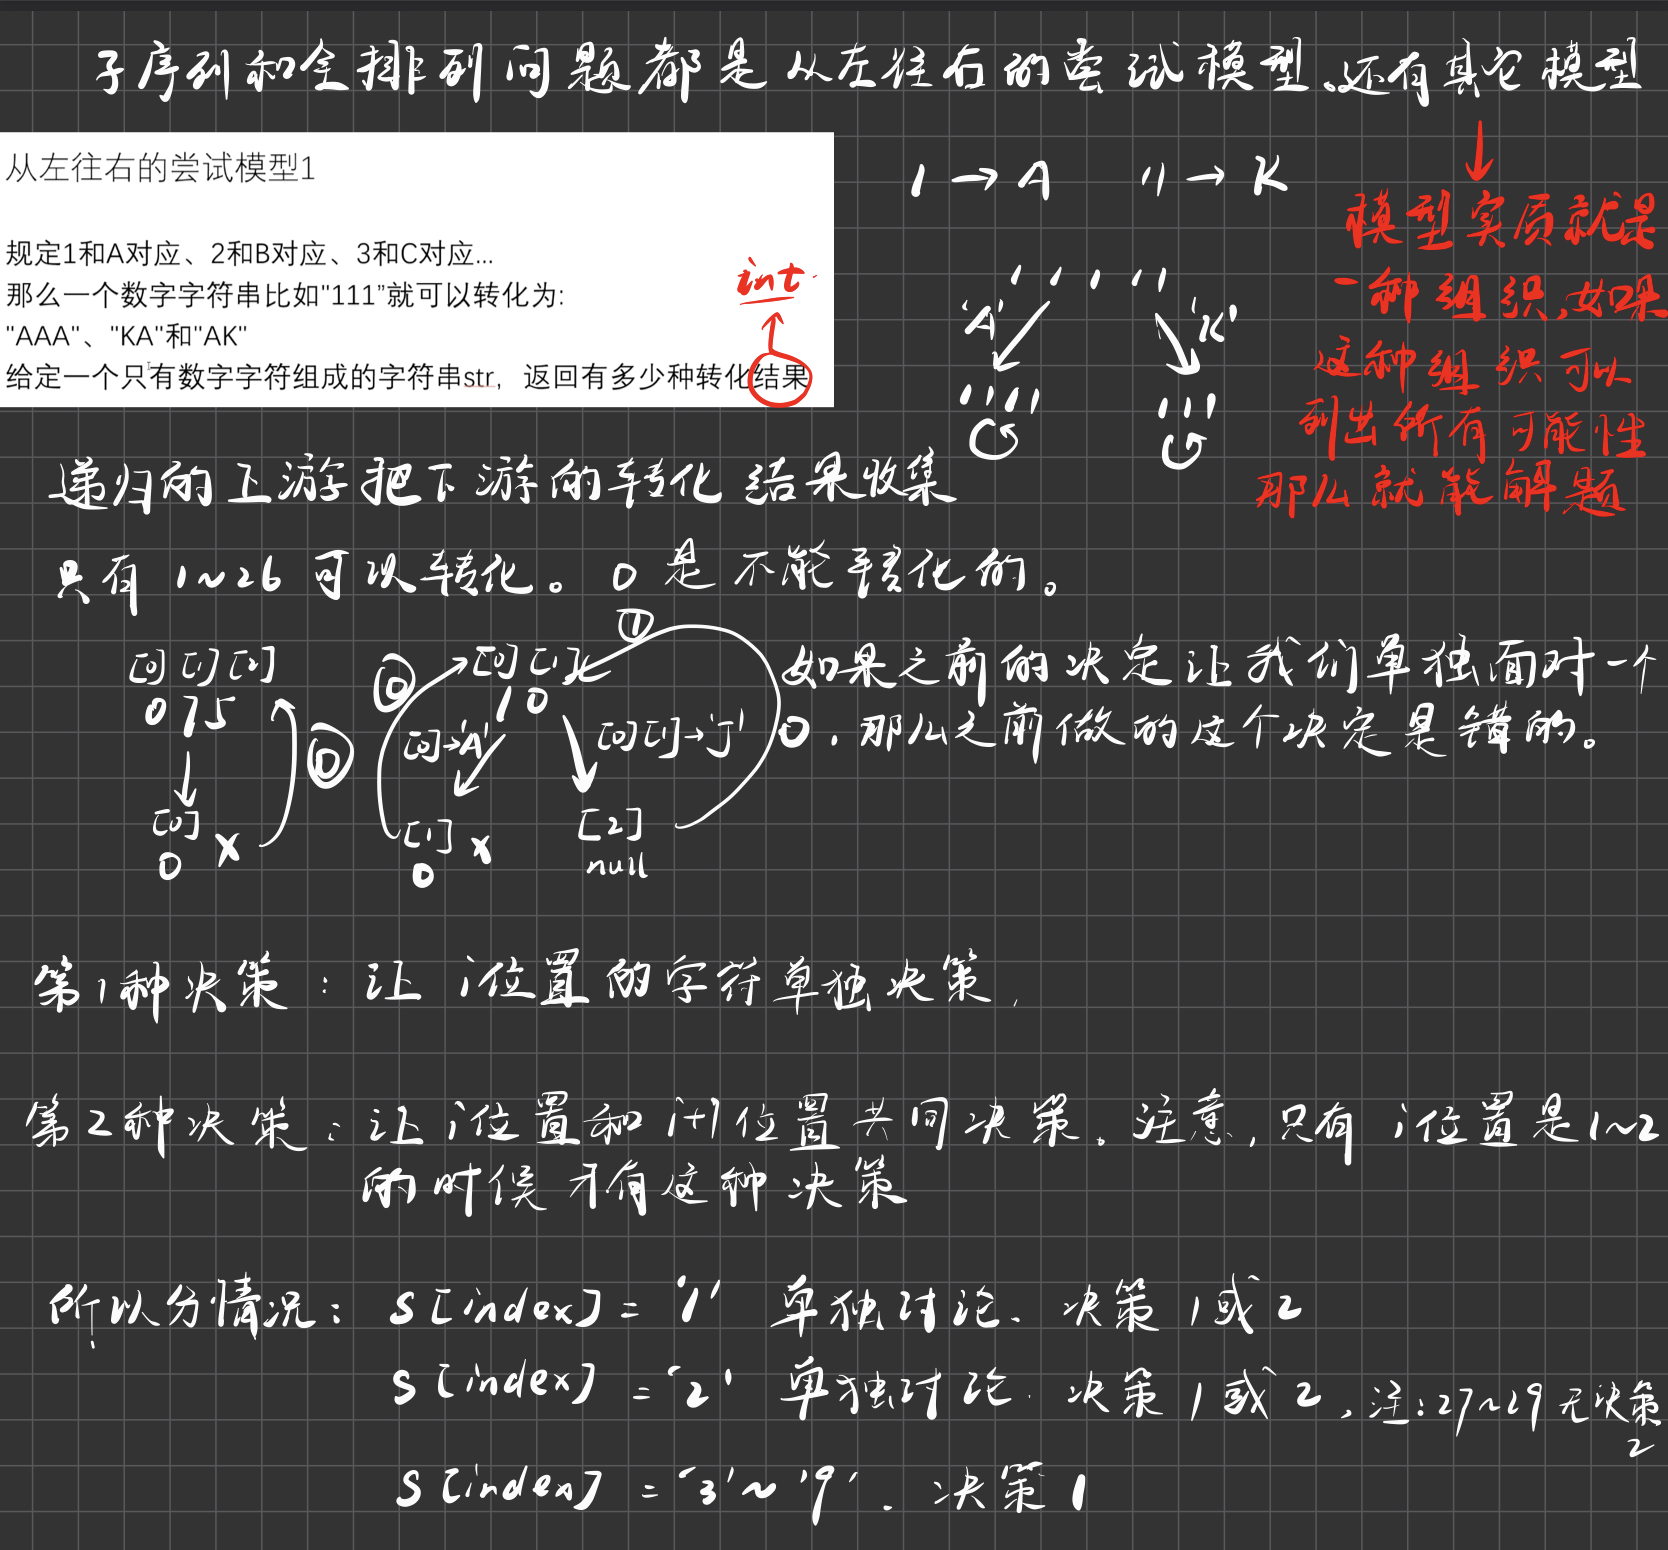 子序列和全排列问题都是从左往右的尝试模型、还有其它模型
从左往右的尝试模型1
规定1和A对应、2和B对应、3和C对应...
那么一个数字字符串比如"111”就可以转化为:
"AAA"、"KA"和"AK"
给定一个只有数字字符组成的字符串str，返回有多少种转化结果
int
1 → A 11 → K
1 1 1 1 1
'A' 'K'
1 1 1 1 1 1 1
模型实质就是
一种组织,如果
这种组织可以
列出所有可能性
那么就能解题
递归的上游把下游的转化结果收集
只有1~26可以转化。0是不能转化的。
[0][1][2]
0 7 5
[0]
0 X
⓪
⓪ [0][1] ①
1 0
[0]→'A' [0][1]→'J'
[1] X [2]
0 null
如果之前的决定让我们单独面对一个
0，那么之前做的这个决定是错的。
第1种决策：让i位置的字符单独决策，
第2种决策：让i位置和i+1位置共同决策。注意,只有i位置是1~2
的时候才有这种决策
所以分情况：S[index] = '1' 单独讨论、决策1或2
S[index] = '2' 单独讨论. 决策1或2，注:27~29无决策
2
S[index] = '3'~'9'. 决策1